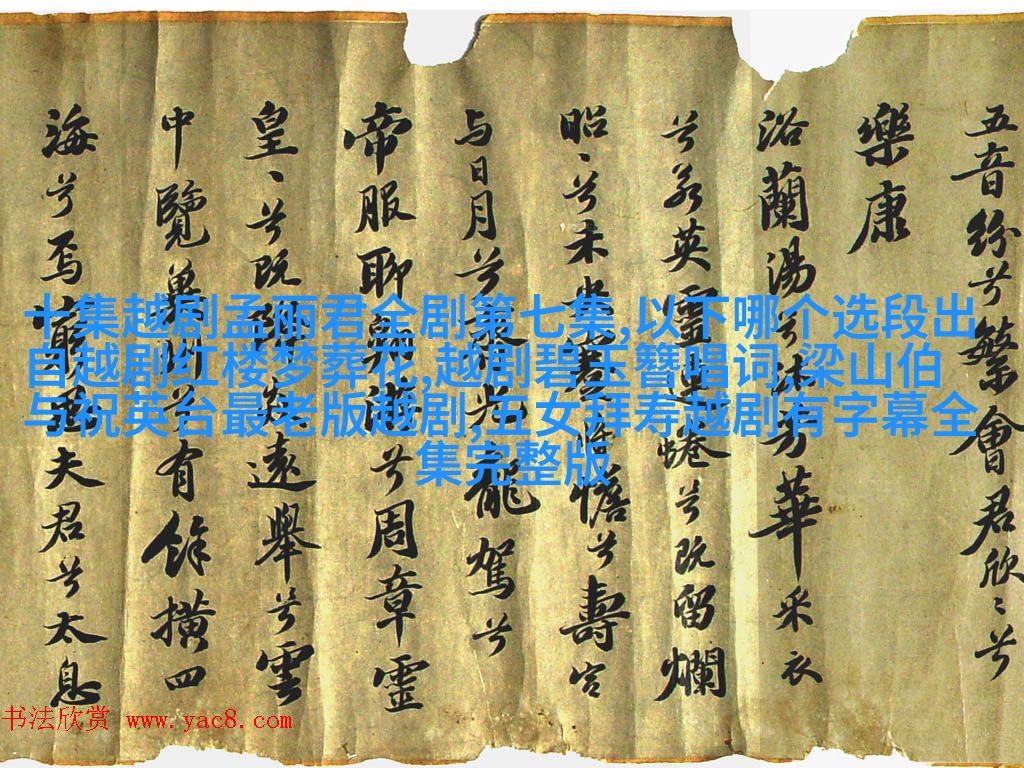 五音紛兮繁會君欣〻兮
樂康
浴蘭湯兮沐芳華采衣
兮若英靈連蜷兮既留爛
昭〻兮未央蹇將憺兮壽宮
与日月兮齊光龍駕兮
帝服聊翱遊兮周章靈
皇〻兮既降猋遠舉兮雲
中覽冀州兮有餘橫四
海兮焉窮思夫君兮太息
十集越剧孟丽君全剧第七集,以下哪个选段出
自越剧红楼梦葬花,越剧碧玉簪唱词,梁山伯
与祝英台最老版越剧,五女拜寿越剧有字幕全
集完整版
书法欣赏 www.yac8.com